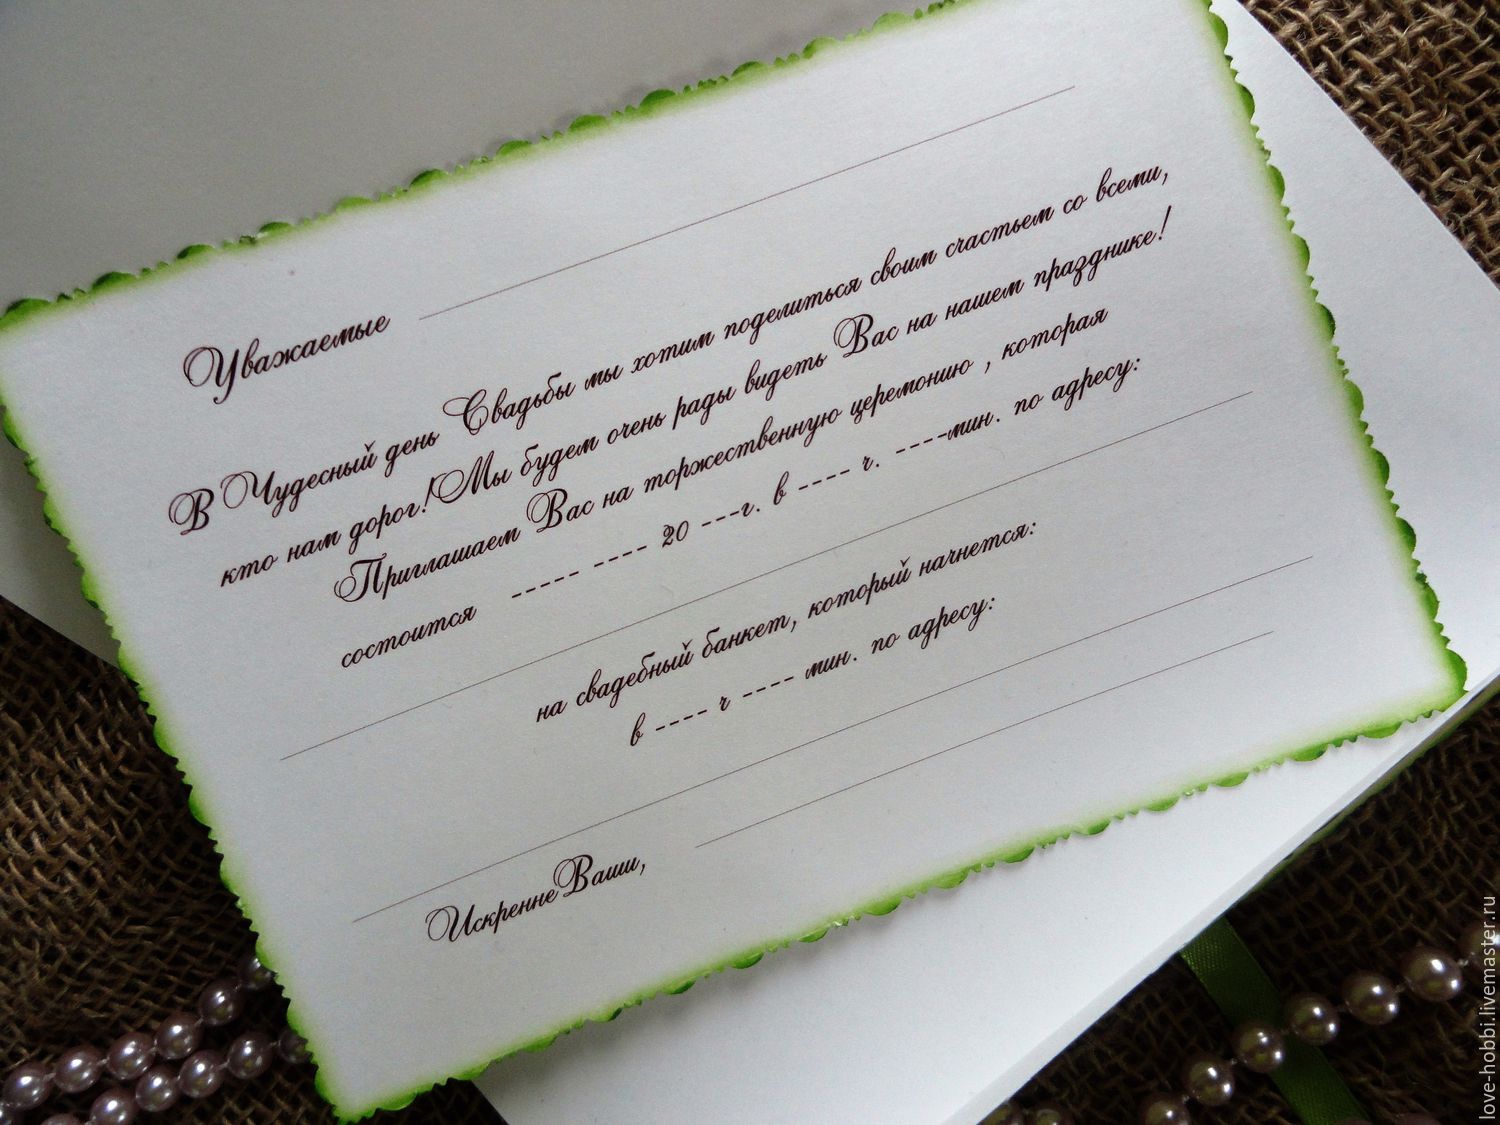 Уважаемые
В Чудесный день Свадьбы мы хотим поделиться своим счастьем со всеми,
кто нам дорог! Мы будем очень рады видеть Вас на нашем празднике!
Приглашаем Вас на торжественную церемонию , которая
состоится ----- ---- 20 ---г. в ---- ч. ----мин. по адресу:
на свадебный банкет, который начнется:
в ---- ч ---- мин. по адресу:
Искренне Ваши,
love-hobbi.livemaster.ru